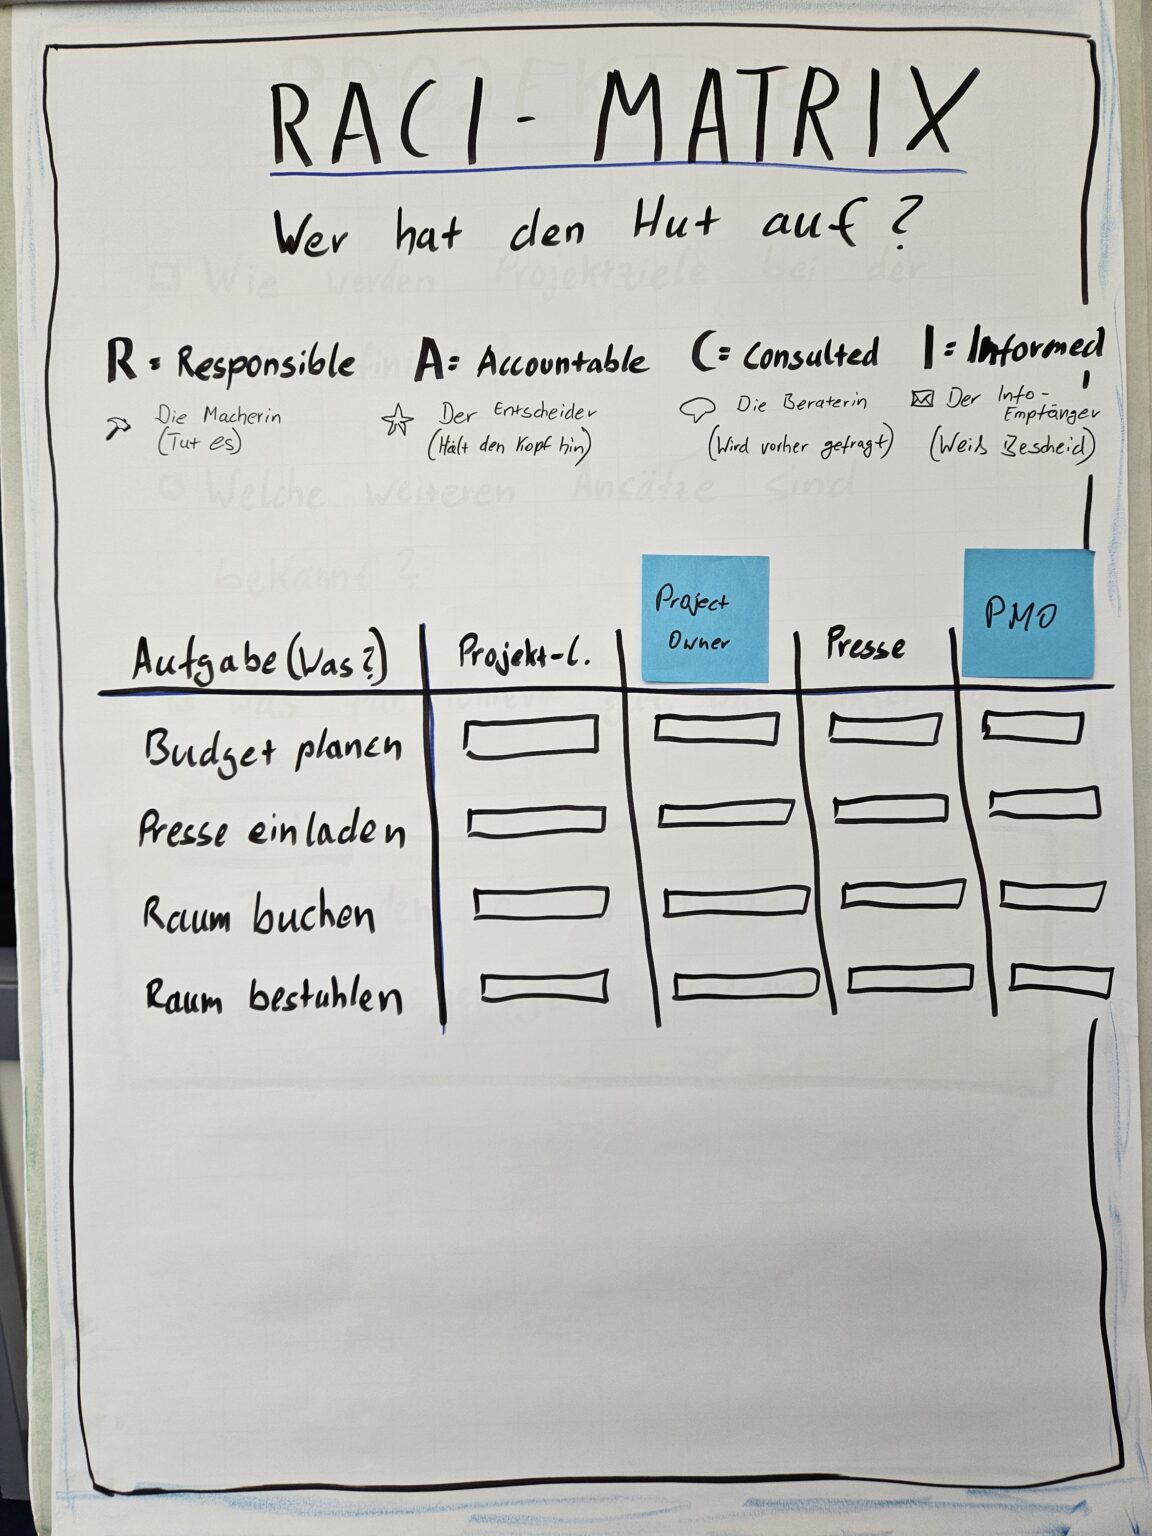 RACI - MATRIX
Wer hat den Hut auf?
R = Responsible A = Accountable C = Consulted I = Informed
Die Macherin
(Tut es)
Der Entscheider
(Hält den Kopf hin)
Die Beraterin
(Wird vorher gefragt)
Der Info-
Empfänger
(Weiß Bescheid)
Aufgabe (Was?) Projekt-L. Project Owner Presse PMO
Budget planen
Presse einladen
Raum buchen
Raum bestuhlen
Wie werden Projektziele bei der
Welche weiteren Ansätze sind
bekannt?